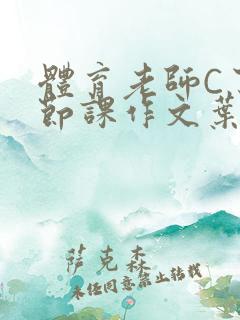 體育老師C了
節課作文葉
萨克森
未经同意禁止转载